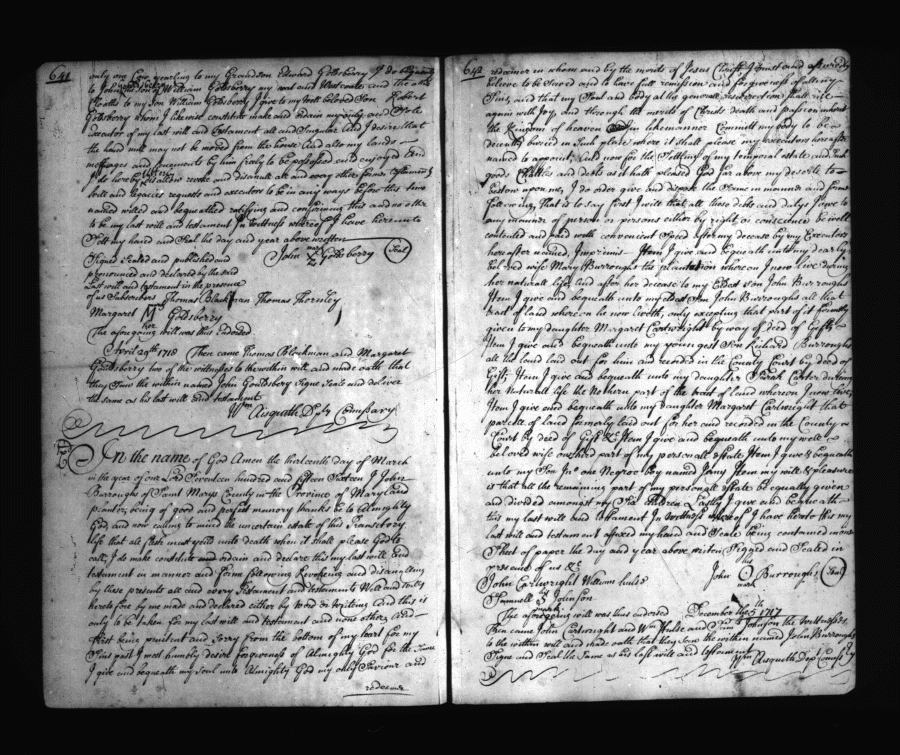 641
only one Cow yearling to my Grandson Edward Goldsberry I do bequeath
to John son of William Goldsberry my wast and Westcoate and the other
Cloaths to my Son William Goldsberry I give to my well beloved Son Robert
Goldsberry whom I likewise constitute make and Ordain my only and Sole
executor of my last will and testament all and Singular And I desire that
the hand mill may not be moved from the house And also my lands
messuages and tenements by him freely to be possessed and enjoyed And
I do hereby utterly disallow revoke and disannull all and every other former testaments
wills and legacies requests and executors to be in any ways before this two
named willed and bequeathed ratifying and confirming this and no other
to be my last will and testament In Wittness whereof I have hereunto
Sett my hand and Seal the day and year above written
Signed Sealed and published and John mark Goldsberry (Seal)
pronounced and declared by the said
Last will and testament in the presence
of us Subscribers Thomas Blackman Thomas Thornley
Margaret M Goldsberry
her
The aforegoing will was thus indorsed
April 29th 1718 Then came Thomas Blackman and Margaret
Gouldsberry two of the wittnesses to the within will and made oath that
they Saw the within named John Gouldsbery Signe Seale and deliver
the same as his last will and testament
Wm Aisquith Dpty Comissary
In the name of God Amen the thirteenth day of March
in the year of our Lord Seventeen hundred and fifteen Sixteen I John
Burroughs of Saint Marys County in the Province of Maryland
planter, being of good and perfect memory thanks be to Almighty
God and now calling to mind the uncertain estate of this Transetory
life that all flesh must yeild unto death when it shall please God to
call, I do make constitute and ordain and declare this my last will And
testament in manner and form following Revokeing and disanulling
by these presents all and every Testament and testaments Will and wills
heretofore by me made and declared either by Word or Writing And this is
only to be taken for my last will and testament and none other And
first being penitent and Sorry from the bottom of my heart for my
Sins past I most humbly desire forgiveness of Almighty God for the Same
I give and bequeath my soul unto Almighty God my only Saviour and
redeemer
642
redeemer in whom and by the merits of Jesus Christ, I trust and assuredly
believe to be Saved and to have full remission and forgiveness of all my
Sins, and that my Soul and body at the generall resurrection Shall rise
again with Joy, and through the merits of Christs death and passion inherit
the Kingdom of heaven In like manner Committ my body to be
decently buried in Such place where it shall please my executors hereafter
named to appoint, And now for the Settling of my temporal estate and Such
goods Chattles and debts as it hath pleased God far above my deserts to
bestow upon me, I do order give and dispose the Same in manner and form
following, That is to say first I will that all those debts and dutys I owe to
any manner of person or persons either by right or concience be well
contented and paid with convenient Speed after my decease by my Executors
hereafter named, Imprimis Item I give and bequeath unto my dearly
beloved wife Mary Burroughs the plantation whereon I now live during
her naturall life, and after her decease to my Eldest son John Burroughs
Item I give and bequeath unto my eldest Son John Burroughs all that
tract of land whereon he now liveth, only excepting that part of it formerly
given to my daughter Margaret Cartwright by way of deed of Gift
Item I give and bequeath unto my youngest Son Richard Burroughs
all the land laid out for him and recorded in the County Court by deed of
Gift, Item I give and bequeath unto my daughter Sarah Carter during
her Naturall life the Northern part of the tract of land whereon I now live,
Item I give and bequeath unto my daughter Margaret Cartwright that
parcell of land formerly laid out for her and recorded in the County
Court by deed of Gift &c Item I give and bequeath unto my well
beloved wife one third part of my personall Estate Item I give & bequeath
unto my Son Jno one Negroe boy named Jany Item my will & pleasure
is that all the remaining part of my personall Estate be equally given
and divided amongst my Six Children Lastly I give and bequeath
this my last will and testament In wittness whereof I have hereto this my
last will and testament affixed my hand and Seale being contained in one
Sheet of paper the day and year above written Signed and Sealed in
presence of us &c
his
John Cartwright William Hulse John O Burroughs (Seal)
mark
Samuell S Johnson
mark
The aforegoing will was thus indorsed December the 5th 1717
Then came John Cartwright and Wm Hulse and Saml Johnson the wittnesses
to the within will and made oath that they Saw the within named John Burroughs
Signe and Seal the Same as his last will and testament
Wm Aisquith Depty Comissry